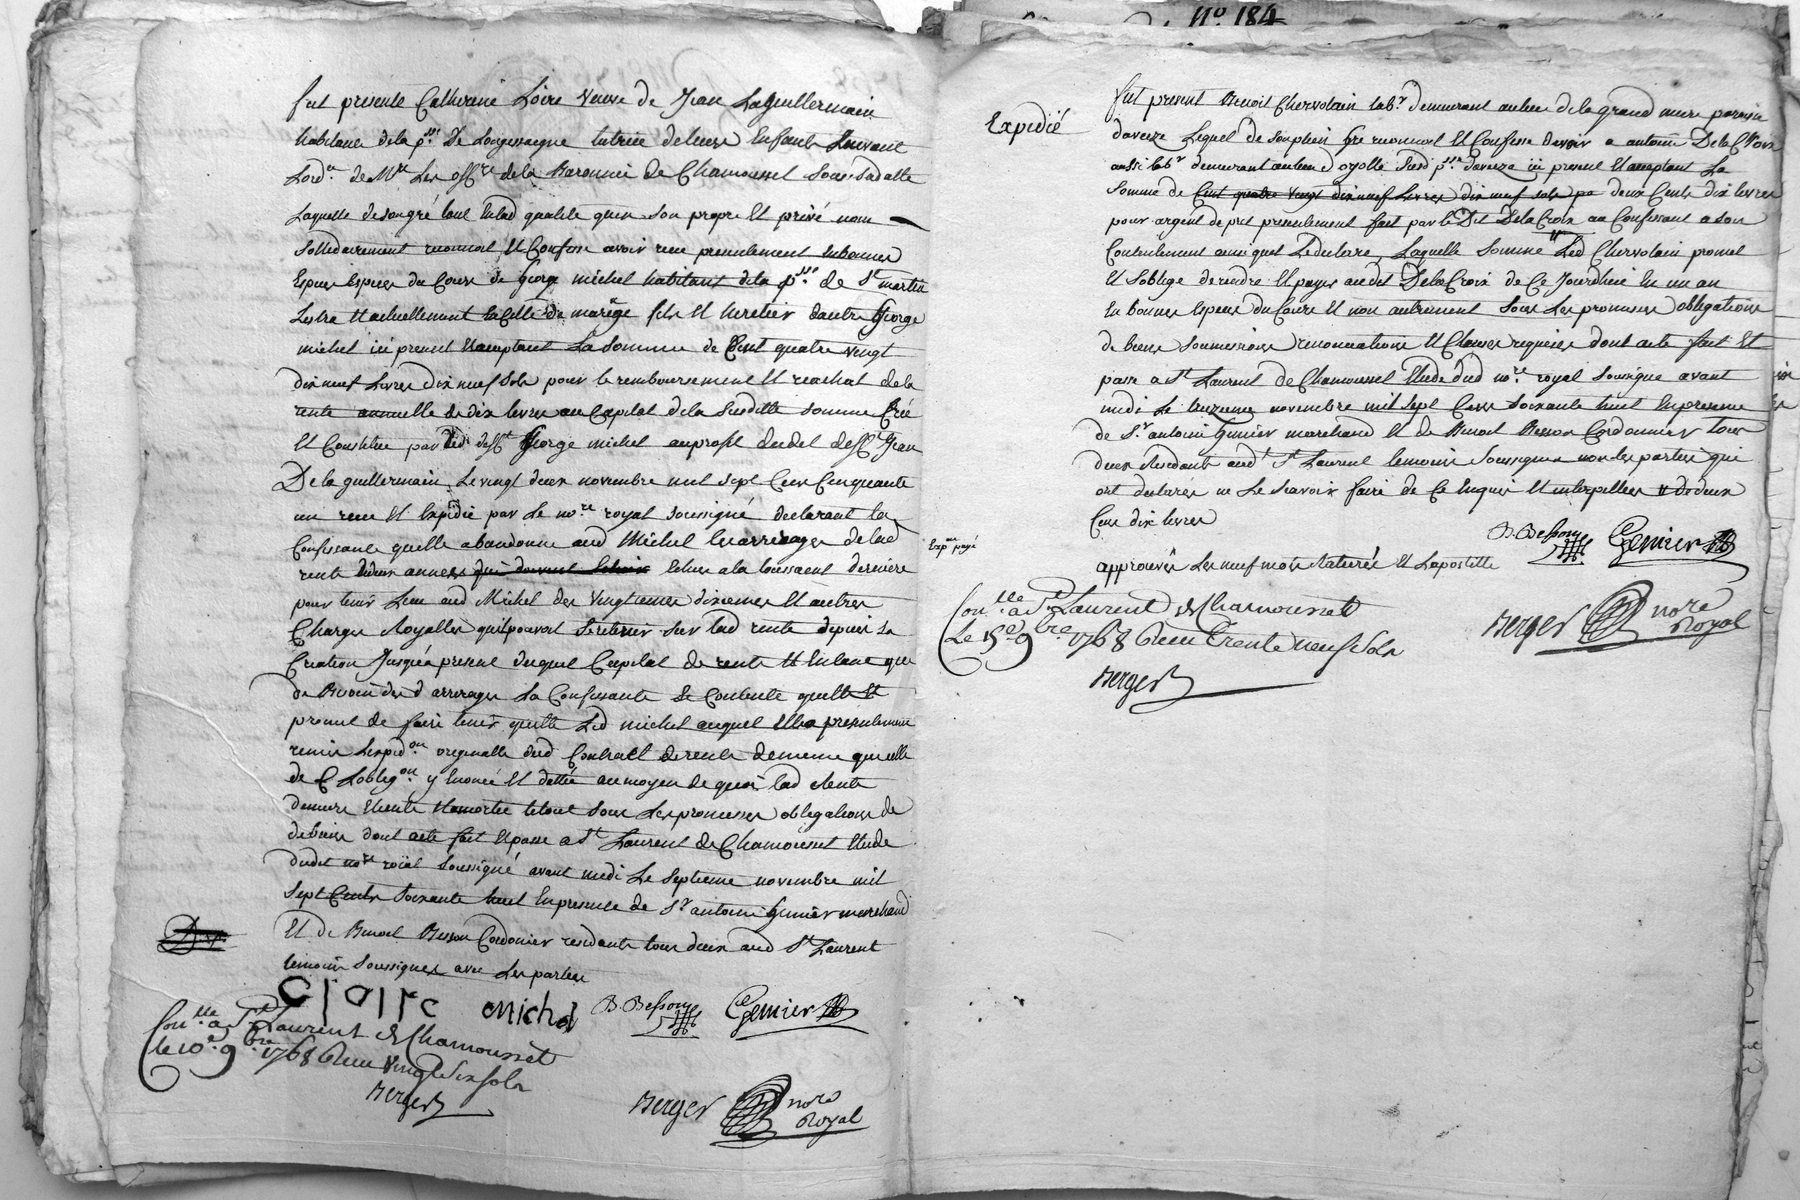 fut presente Catherine Loire veuve de Jean Laguillermain
habitante dela p.sse De Longessaigne tutrice deleurs Enfants Suivant
Lord.ce de Mrs Les offrs dela Baronnie de Chamousset Sous Sadatte
Laquelle desongré tant Enlad qualité quen son propre Et privé nom
Sollidairement reconnoit Et Confesse avoir receu presentement Enbonnes
Especes du Cours de George michel habitant dela p.sse de St martin
Lestra Et actuellement fils Et heretier dautre George
michel ici present Et acceptant La Somme de Cent quatre vingt
dix neuf Livres dix neuf Sols pour le remboursement Et reachat dela
rente annuelle de dix livres au Capital dela Susditte somme Créé
Et Constitué par led deff.t George michel auprofit dudit deff.t Jean
De la guillermain Le vingt deux novembre mil sept Cens Cinquante
un receu Et Expedié par Le no.re royal soussigné declarant la
Confessante quelle abandonne aud Michel Les arrerages delad
rente deux années qui doivent Echoir Echus a la toussaint derniere
pour tenir Lieu aud Michel des vingtiemes dixiemes Et autres
Charges Royalles quil pouvoit Sur lad rente depuis sa
Creation Jusqu'a present duquel Capital de rente
d'arrerages La Confessante Se Contente quitte Et
promet de faire tenir quitte Led michel auquel Ella presentement
remis Lexped.on originalle dud Contrat de rente dememe quelle
de Loblig.on y Enoncé Et dattée au moyen de quoi lad Rente
demeure Eteinte Et amortie letout Sous Les promesses obligations de
de biens dont acte fait Et passé a St Laurent de Chamousset Etude
dudit no.re roïal Soussigné avant midi Le Septieme novembre mil
Sept Cents Soixante huit Enpresence de Sr antoine Gunier marchand
Et de Benoit Besson Cordonier residants tous deux aud St Laurent
temoins Soussignés avec Les parties
michel B. Besson Gemier
Con.lle a St Laurent de Chamousset
le 10e 9bre 1768 Reçu Vingt Six sols
Berger
Berger nore
Royal
No. 184
Expedié
fut present Benoit Chervolain lab.r demeurant aulieu dela grand mure paroisse
daveize Lequel de songré reconnoit Et Confesse devoir a antoine DelaCroix
aussi lab.r demeurant aulieu dud p.sse daveize ici present Et acceptant La
Somme de Cent quatre vingt dix neuf Livres dix neuf sols deux Cents dix livres
pour argent de pret presentement fait par le Dit DelaCroix au Confessant a son
Contentement ainsi quil Le declare, Laquelle Somme Led Chervolain promet
Et Soblige de rendre Et payer audit DelaCroix de Ce Jourdhui En un an
En bonnes Especes du Cours Et non autrement Sous Les promesses obligations
de biens soumissions renonciations Et Clauses requises dont acte fait Et
passé a St Laurent de Chamousset Etude dud no.re royal Soussigné avant
midi Le novembre mil Sept Cens Soixante huit Enpresence
de Sr antoine Gunier marchand Et de Benoit Besson Cordonnier tous
deux Residants aud St Laurent temoins Soussignés non les parties qui
ont declarés ne Le Scavoir faire de Ce Enquis Et interpellées
Cens dix livres
B. Besson Gemier
payé
approuvés Les neuf mots Raturés Et Lapostille
Con.lle a St Laurent de Chamousset
Le 15e 9bre 1768 Reçu Trente neuf Sols
Berger
Berger nore
Royal